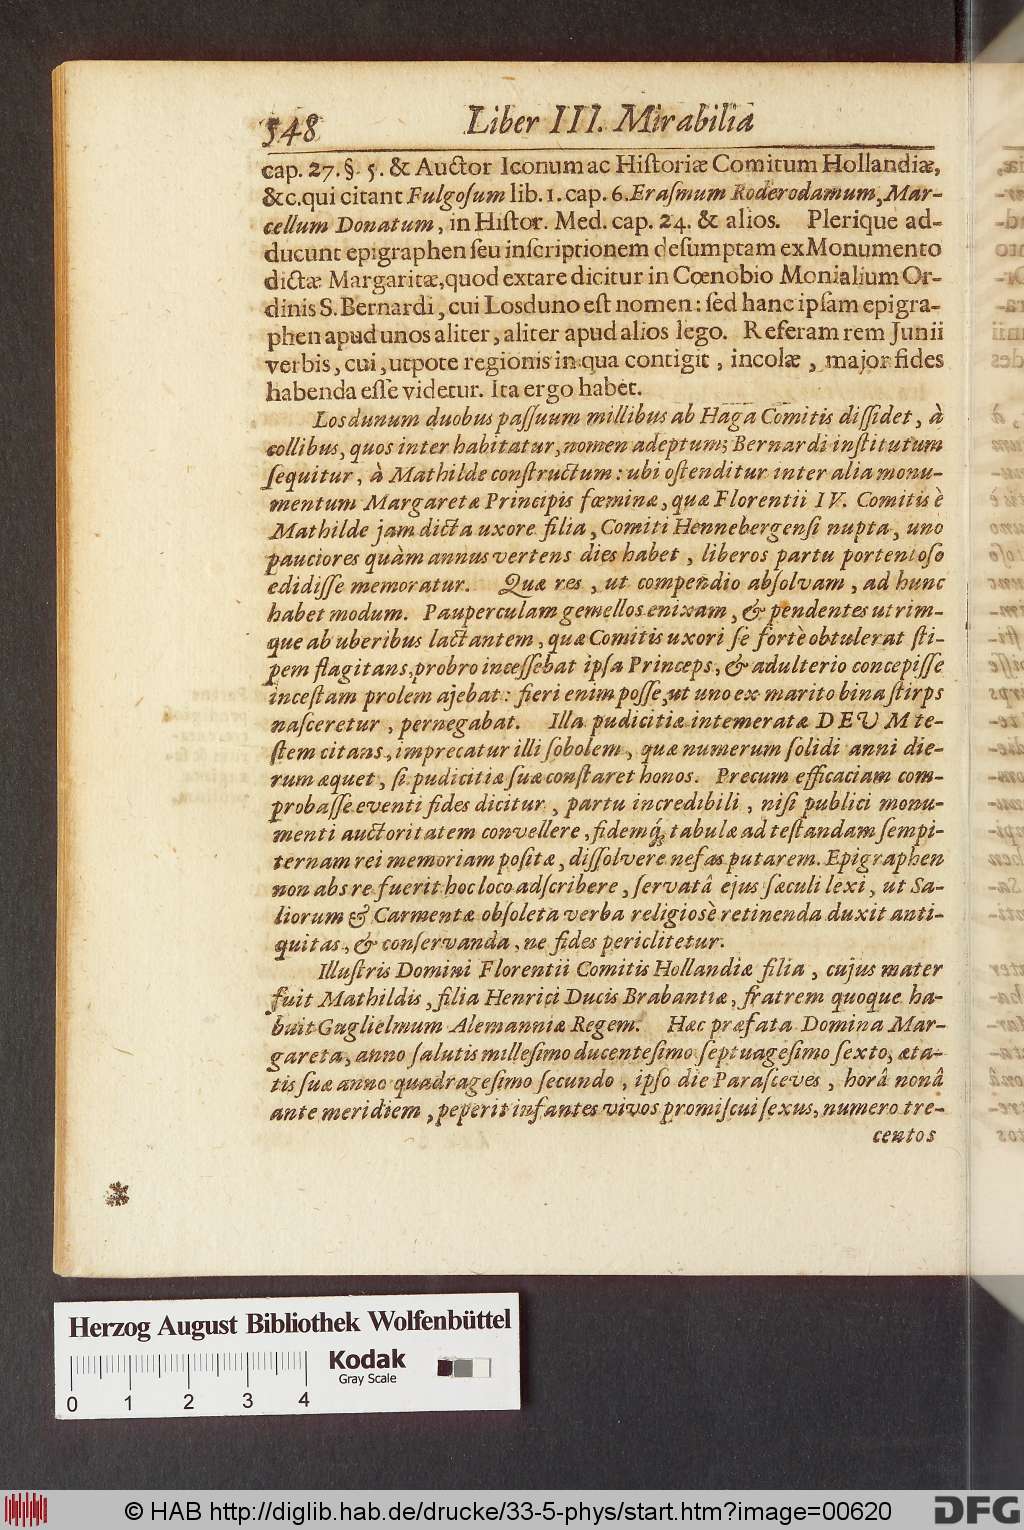 548 Liber III. Mirabilia
cap. 27. §. 5. & Auctor Iconum ac Historiæ Comitum Hollandiæ,
&c. qui citant Fulgosum lib. 1. cap. 6. Erasmum Roderodamum, Mar-
cellum Donatum, in Histor. Med. cap. 24. & alios. Plerique ad-
ducunt epigraphen seu inscriptionem desumptam ex Monumento
dictæ Margaritæ, quod extare dicitur in Cœnobio Monialium Or-
dinis S. Bernardi, cui Losduno est nomen: sed hanc ipsam epigra-
phen apud unos aliter, aliter apud alios lego. Referam rem Junii
verbis, cui, utpote regionis in qua contigit, incolæ, major fides
habenda esse videtur. Ita ergo habet.
Losdunum duobus passuum millibus ab Haga Comitis dissidet, à
collibus, quos inter habitatur, nomen adeptum; Bernardi institutum
sequitur, à Mathilde constructum: ubi ostenditur inter alia monu-
mentum Margaretæ Principis fœminæ, quæ Florentii IV. Comitis è
Mathilde jam dicta uxore filia, Comiti Hennebergensi nupta, uno
pauciores quàm annus vertens dies habet, liberos partu portentoso
edidisse memoratur. Quæ res, ut compendio absolvam, ad hunc
habet modum. Pauperculam gemellos enixam, & pendentes utrim-
que ab uberibus lactantem, quæ Comitis uxori se fortè obtulerat sti-
pem flagitans, probro incessebat ipsa Princeps, & adulterio concepisse
incestam prolem ajebat: fieri enim posse, ut uno ex marito bina stirps
nasceretur, pernegabat. Illa pudicitiæ intemeratæ DEUM te-
stem citans, imprecatur illi sobolem, quæ numerum solidi anni die-
rum æquet, si pudicitiæ suæ constaret honos. Precum efficaciam com-
probasse eventi fides dicitur, partu incredibili, nisi publici monu-
menti auctoritatem convellere, fidemq́; tabulæ ad testandam sempi-
ternam rei memoriam positæ, dissolvere nefas putarem. Epigraphen
non abs re fuerit hoc loco adscribere, servatâ ejus sæculi lexi, ut Sa-
liorum & Carmentæ obsoleta verba religiosè retinenda duxit anti-
quitas, & conservanda, ne fides periclitetur.
Illustris Domini Florentii Comitis Hollandiæ filia, cujus mater
fuit Mathildis, filia Henrici Ducis Brabantiæ, fratrem quoque ha-
buit Guglielmum Alemanniæ Regem. Hæc præfata Domina Mar-
gareta, anno salutis millesimo ducentesimo septuagesimo sexto, æta-
tis suæ anno quadragesimo secundo, ipso die Parasceves, horâ nonâ
ante meridiem, peperit infantes vivos promiscui sexus, numero tre-
centos
Herzog August Bibliothek Wolfenbüttel
Kodak
Gray Scale
0 1 2 3 4
© HAB http://diglib.hab.de/drucke/33-5-phys/start.htm?image=00620
DFG